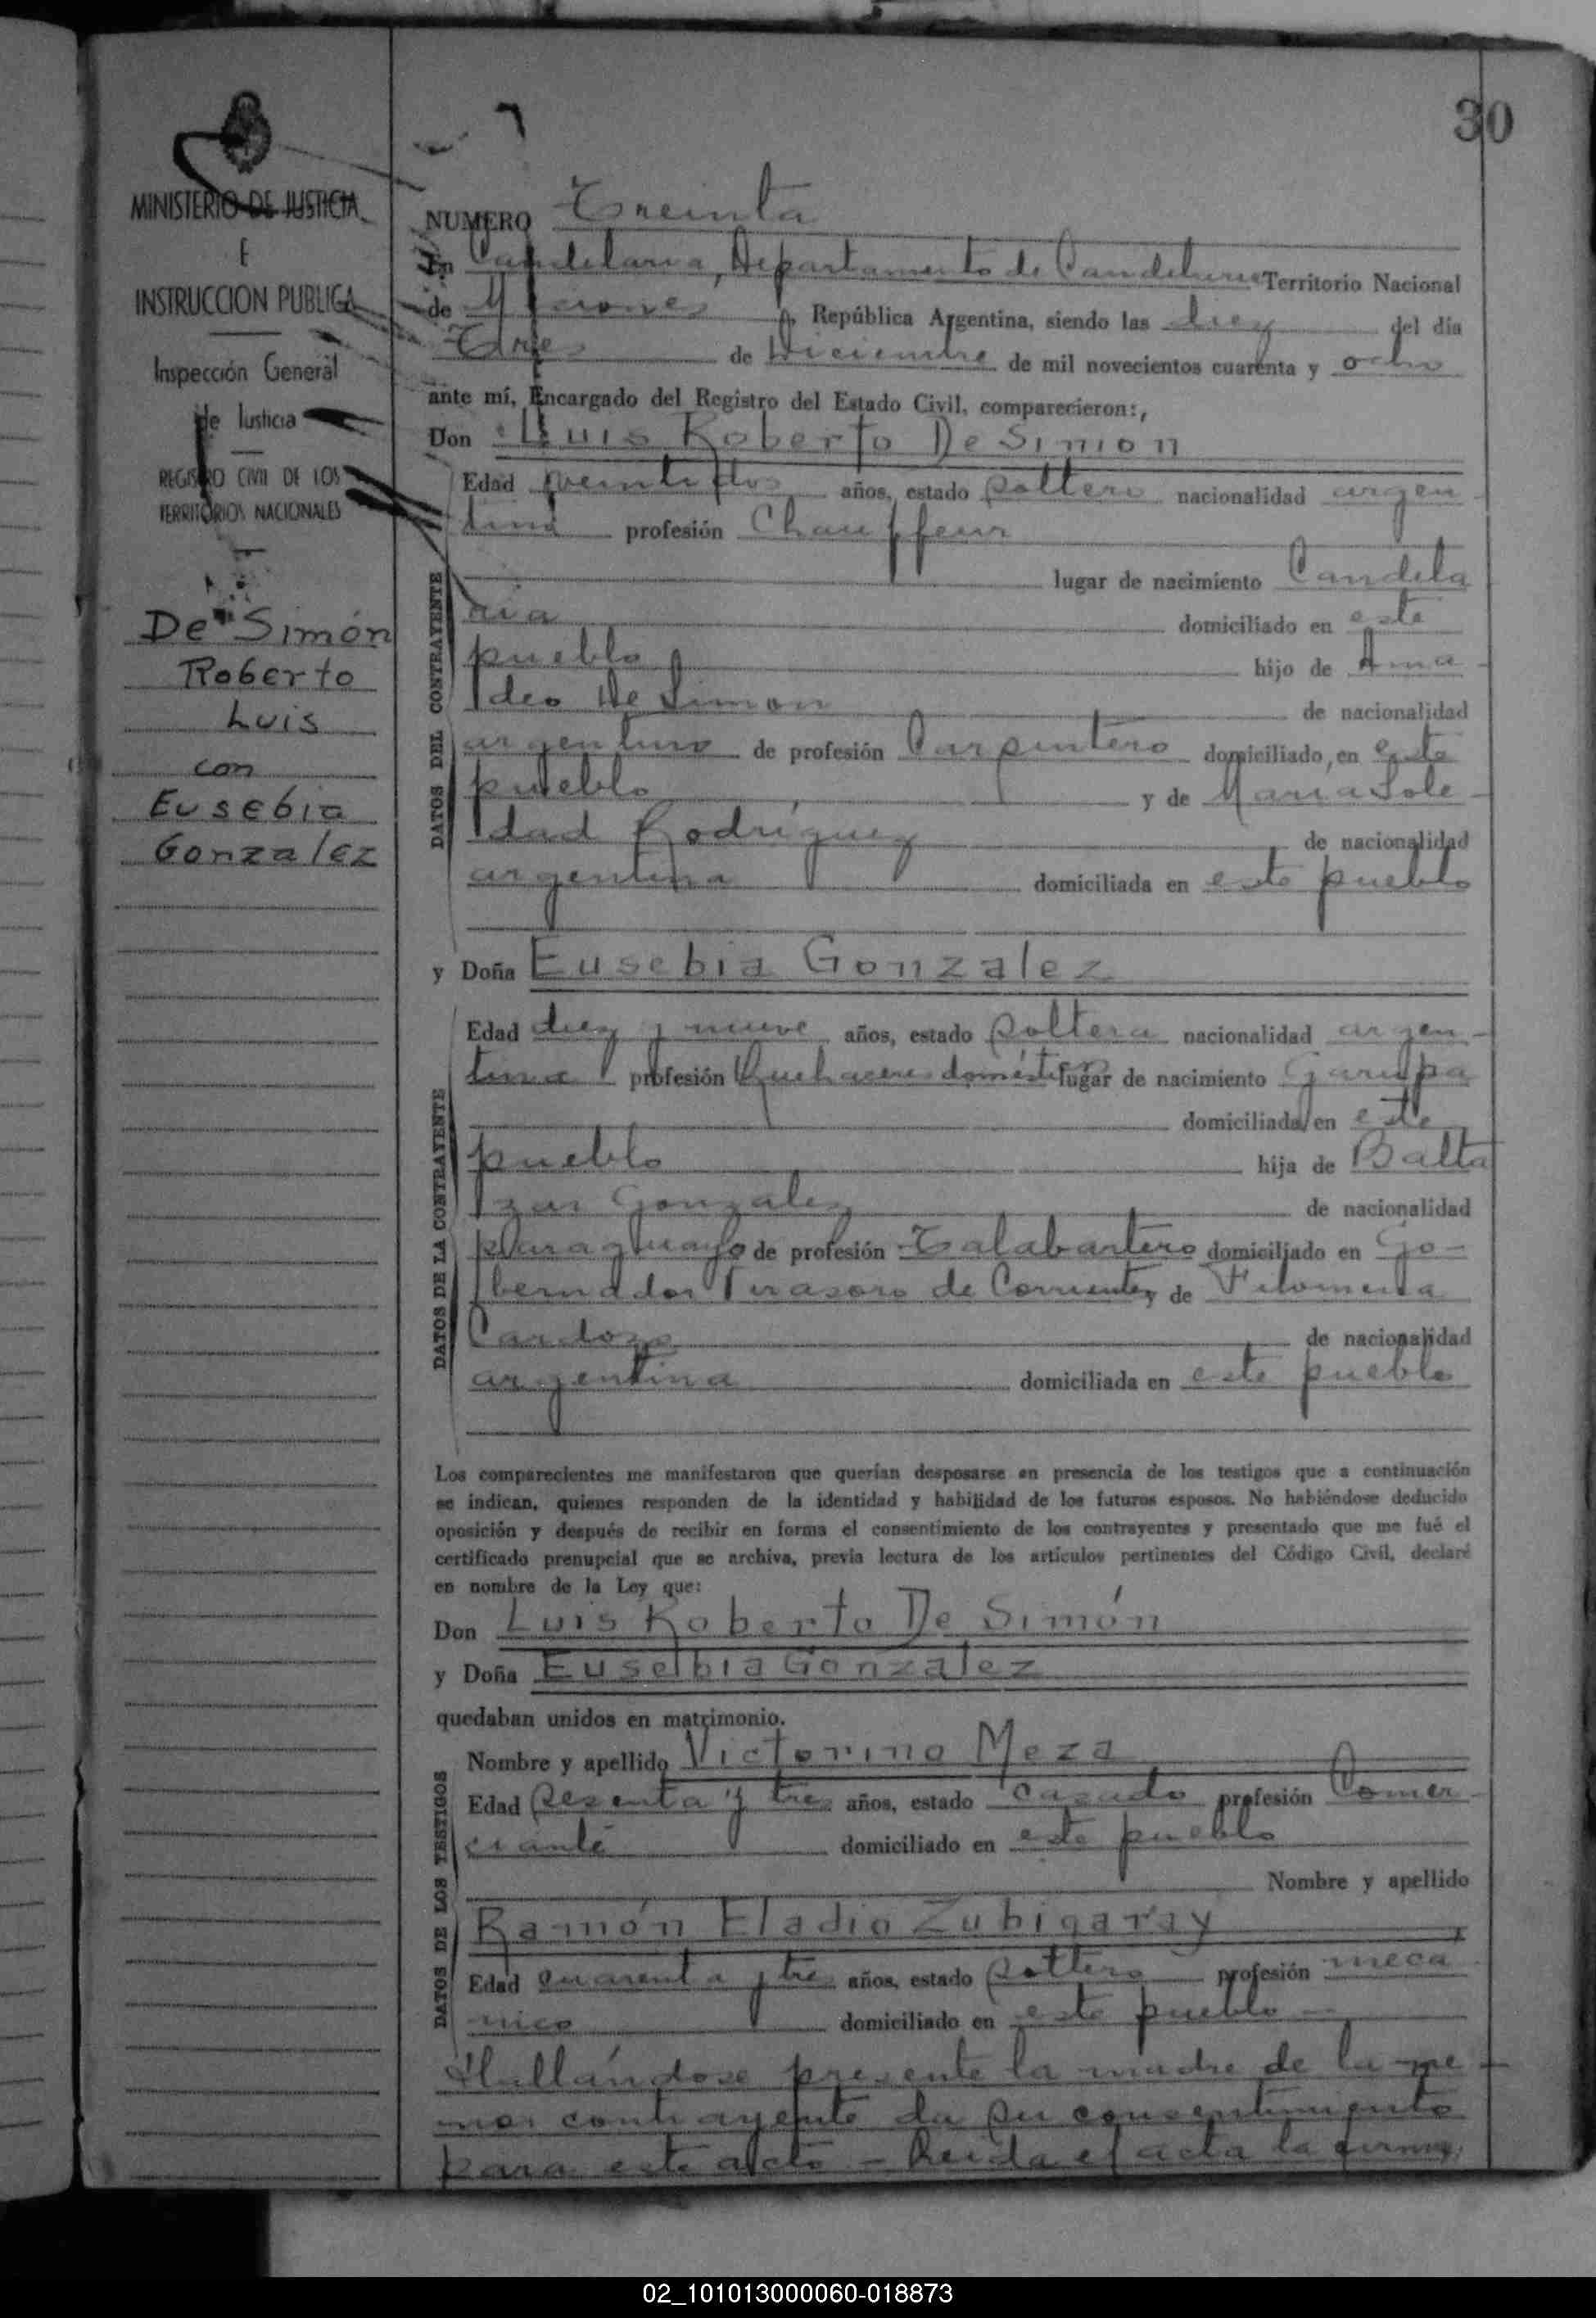 30
MINISTERIO DE JUSTICIA
E
INSTRUCCION PUBLICA
Inspección General
de Justicia
REGISTRO CIVIL DE LOS
TERRITORIOS NACIONALES
De Simón
Roberto
Luis
con
Eusebia
Gonzalez
NUMERO Treinta
En Candelaria, Departamento de Candelaria Territorio Nacional
de Misiones República Argentina, siendo las diez del día
Tres de Diciembre de mil novecientos cuarenta y ocho
ante mí, Encargado del Registro del Estado Civil, comparecieron:,
Don Luis Roberto De Simon
DATOS DEL CONTRAYENTE
Edad veinti dos años, estado soltero nacionalidad argen
tina profesión Chauffeur
lugar de nacimiento Candela
ria domiciliado en este
pueblo hijo de Ama
deo De Simon de nacionalidad
argentino de profesión Carpintero domiciliado, en este
pueblo y de Maria Sole
dad Rodríguez de nacionalidad
argentina domiciliada en este pueblo
y Doña Eusebia Gonzalez
DATOS DE LA CONTRAYENTE
Edad diez y nueve años, estado soltera nacionalidad argen-
tina profesión Quehaceres domésticos lugar de nacimiento Garupa
domiciliada en este
pueblo hija de Balta
zar Gonzalez de nacionalidad
paraguayo de profesión Talabartero domiciliado en Go-
bernador Virasoro de Corrientes y de Filomena
Cardozo de nacionalidad
argentina domiciliada en este pueblo
Los comparecientes me manifestaron que querían desposarse en presencia de los testigos que a continuación
se indican, quienes responden de la identidad y habilidad de los futuros esposos. No habiéndose deducido
oposición y después de recibir en forma el consentimiento de los contrayentes y presentado que me fué el
certificado prenupcial que se archiva, previa lectura de los artículos pertinentes del Código Civil, declaré
en nombre de la Ley que:
Don Luis Roberto De Simón
y Doña Eusebia Gonzalez
quedaban unidos en matrimonio.
DATOS DE LOS TESTIGOS
Nombre y apellido Victorino Meza
Edad sesenta y tres años, estado casado profesión Comer-
ciante domiciliado en este pueblo
Nombre y apellido
Ramón Eladio Zubigaray
Edad cuarenta y tres años, estado soltero profesión meca
nico domiciliado en este pueblo
Hallándose presente la madre de la me-
nor contrayente da su consentimiento
para este acto - Leida el acta la firman
02_101013000060-018873